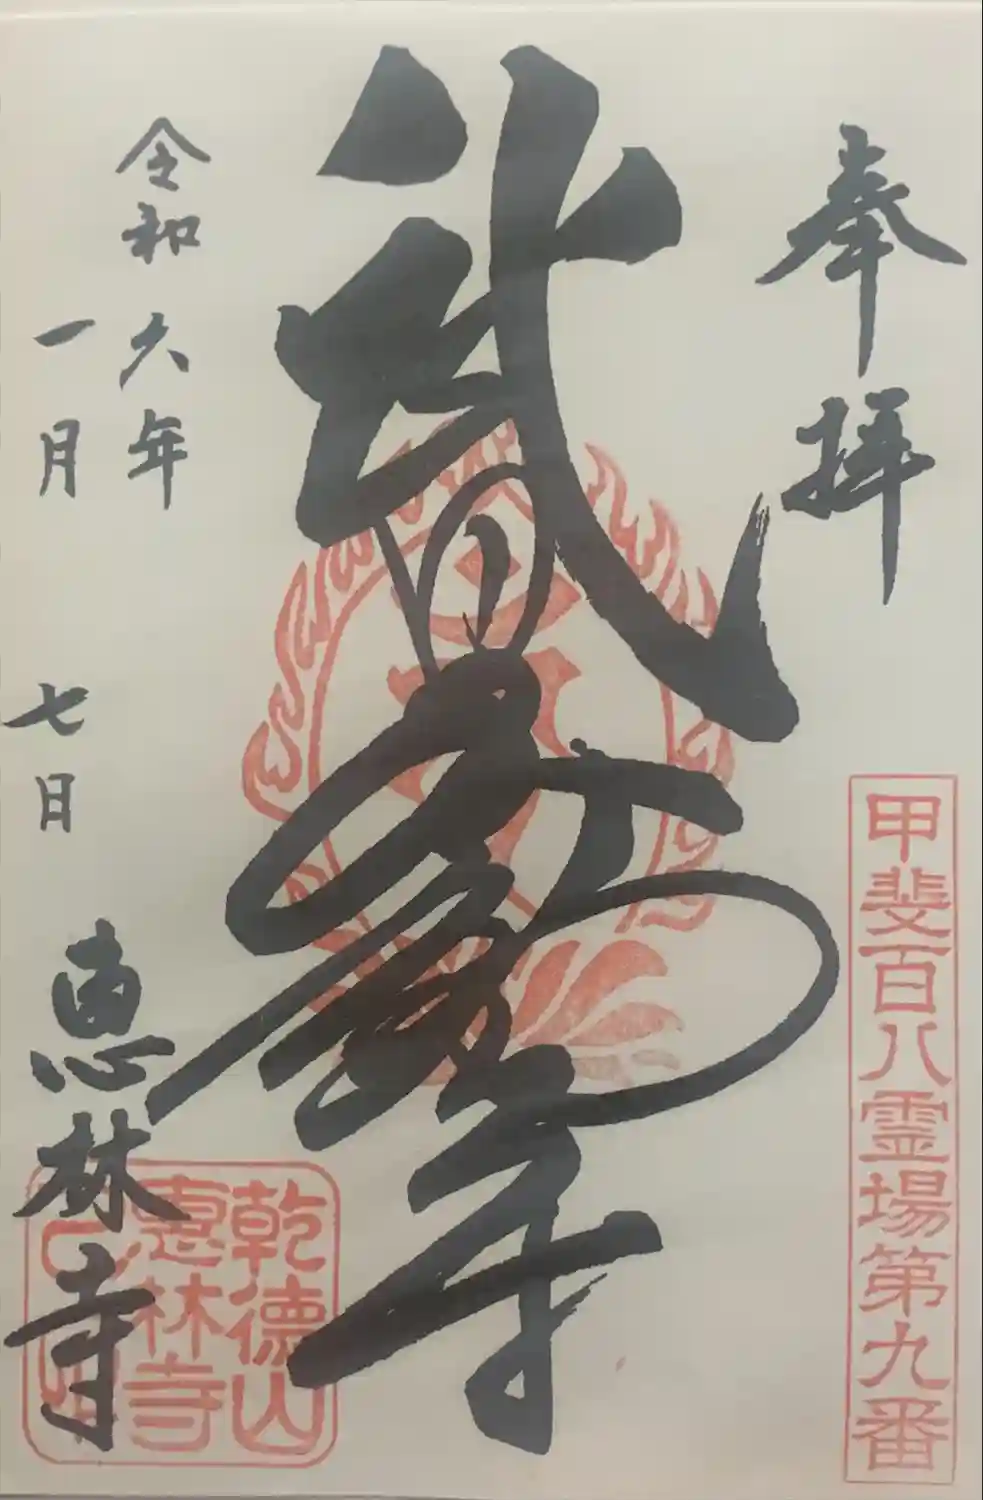 奉拝
甲斐百八霊場第九番
武田不動尊
令和六年
一月七日
恵林寺
乾徳山
惠林寺